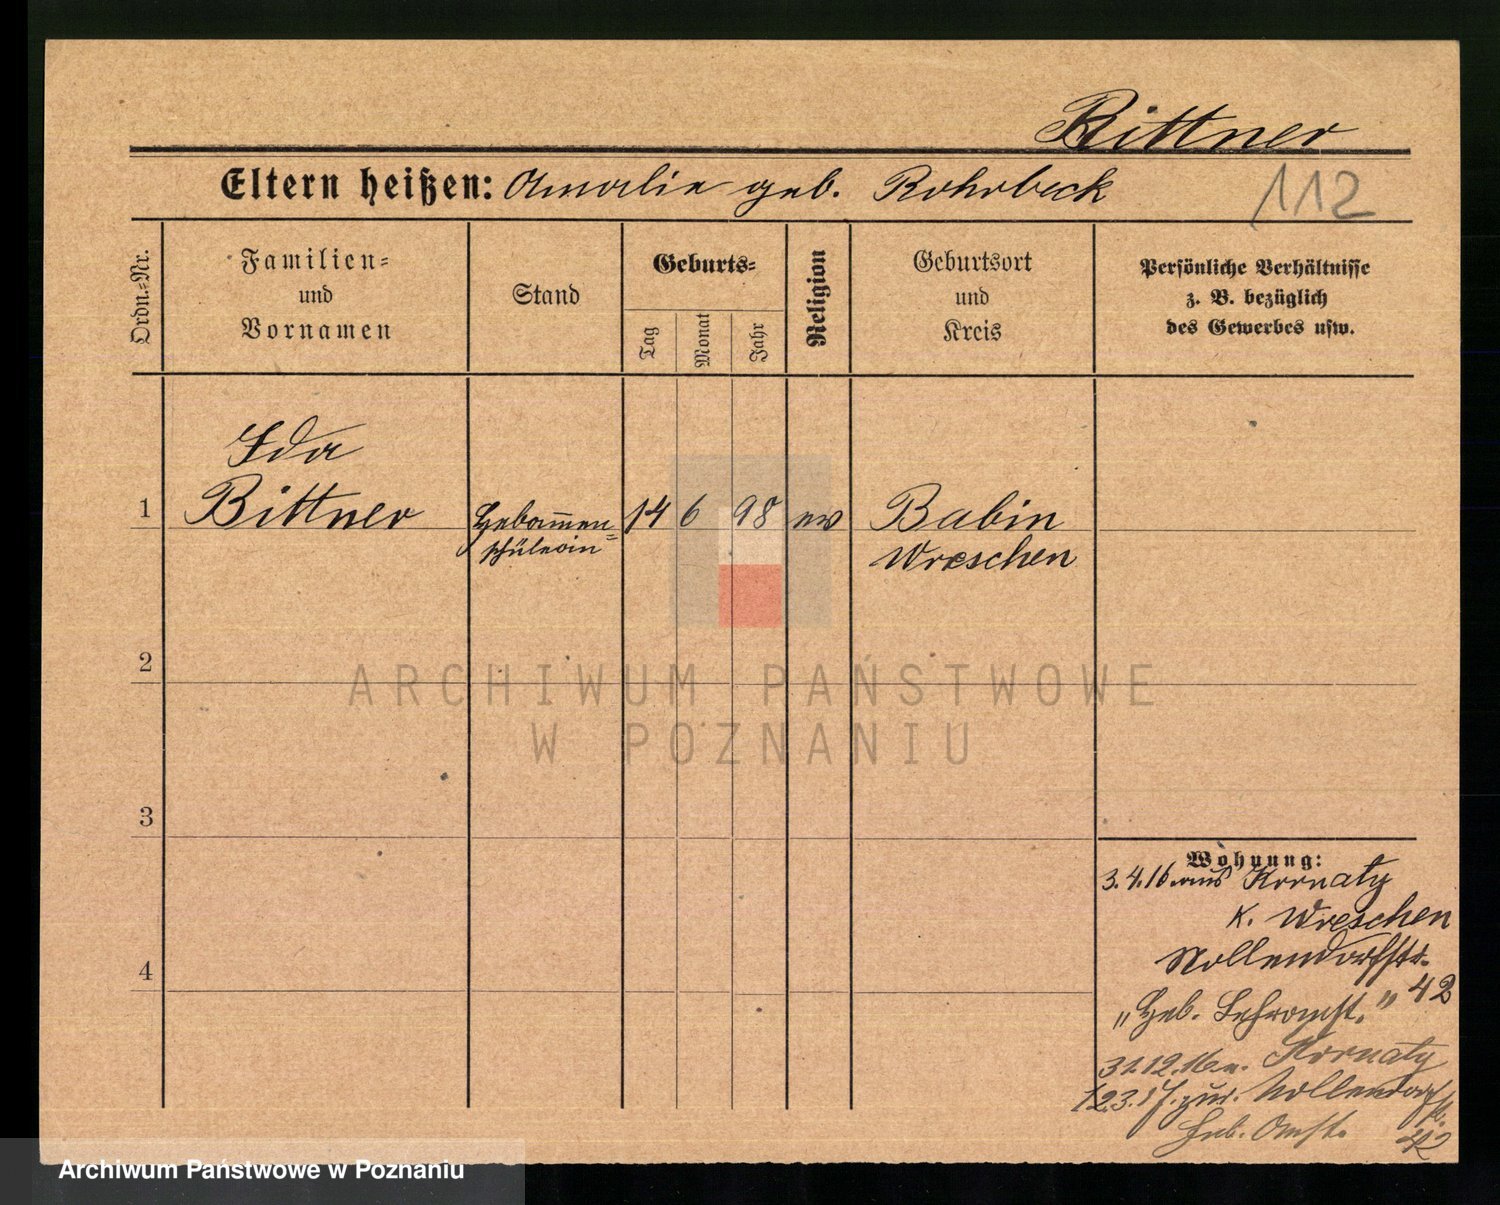 Bittner
Eltern heißen: Amalie geb. Rohrbeck
112
Ordn.-Nr.
Familien-
und
Vornamen
Stand
Geburts-
Tag
Monat
Jahr
Religion
Geburtsort
und
Kreis
Persönliche Verhältnisse
z. B. bezüglich
des Gewerbes usw.
Ida
1 Bittner Hebammen= 14 6 98 ev Babin
schülerin Wreschen
2
ARCHIWUM PAŃSTWOWE
W POZNANIU
3
Wohnung:
3.4.16 aus Kornaty
K. Wreschen
Nollendorfstr.
42
"Heb. Lehranst."
4
31.12.16 n. Kornaty
12.3.17. zur. Nollendorfstr.
Heb. Anst. 42
Archiwum Państwowe w Poznaniu